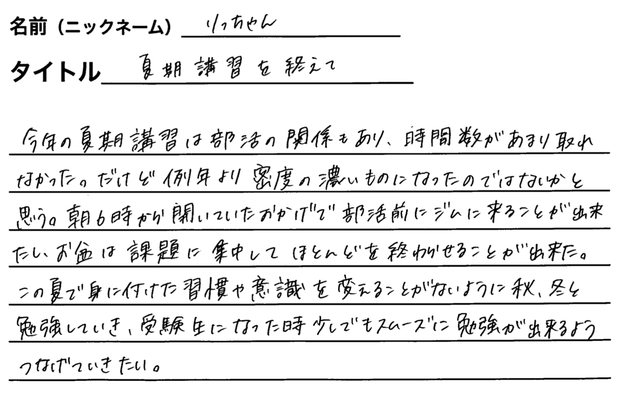 名前（ニックネーム） りっちゃん
タイトル 夏期講習を終えて
今年の夏期講習は部活の関係もあり、時間数があまり取れ
なかった。だけど例年より密度の濃いものになったのではないかと
思う。朝6時から開いていたおかげで部活前にジムに来ることが出来
たし、お盆は課題に集中してほとんどを終わらせることが出来た。
この夏で身に付けた習慣や意識を変えることがないように秋、冬と
勉強していき、受験生になった時少しでもスムーズに勉強が出来るよう
つなげていきたい。